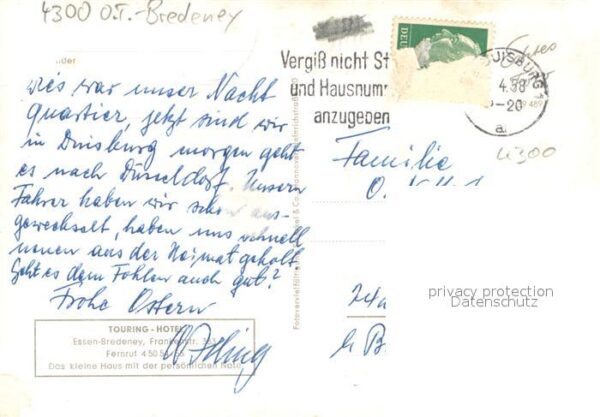 4300 O.T.-Bredeney
Vergiß nicht St
und Hausnum
anzugeben
DEU
UISBURG 1
4.58
-20
a
4300
nder
dies war unser Nacht
quartier, jetzt sind wir
in Duisburg morgen geht
es nach Düsseldorf. Unsern
Fahrer haben wir schon aus-
gewechselt, haben uns schnell
neuen aus der Heimat geholt
Geht es dem Fohlen auch gut?
Frohe Ostern
Familie
O.
TOURING-HOTEL
Essen-Bredeney, Frankenstr.
Fernruf 450
Das kleine Haus mit der persönlichen Note
privacy protection
Datenschutz